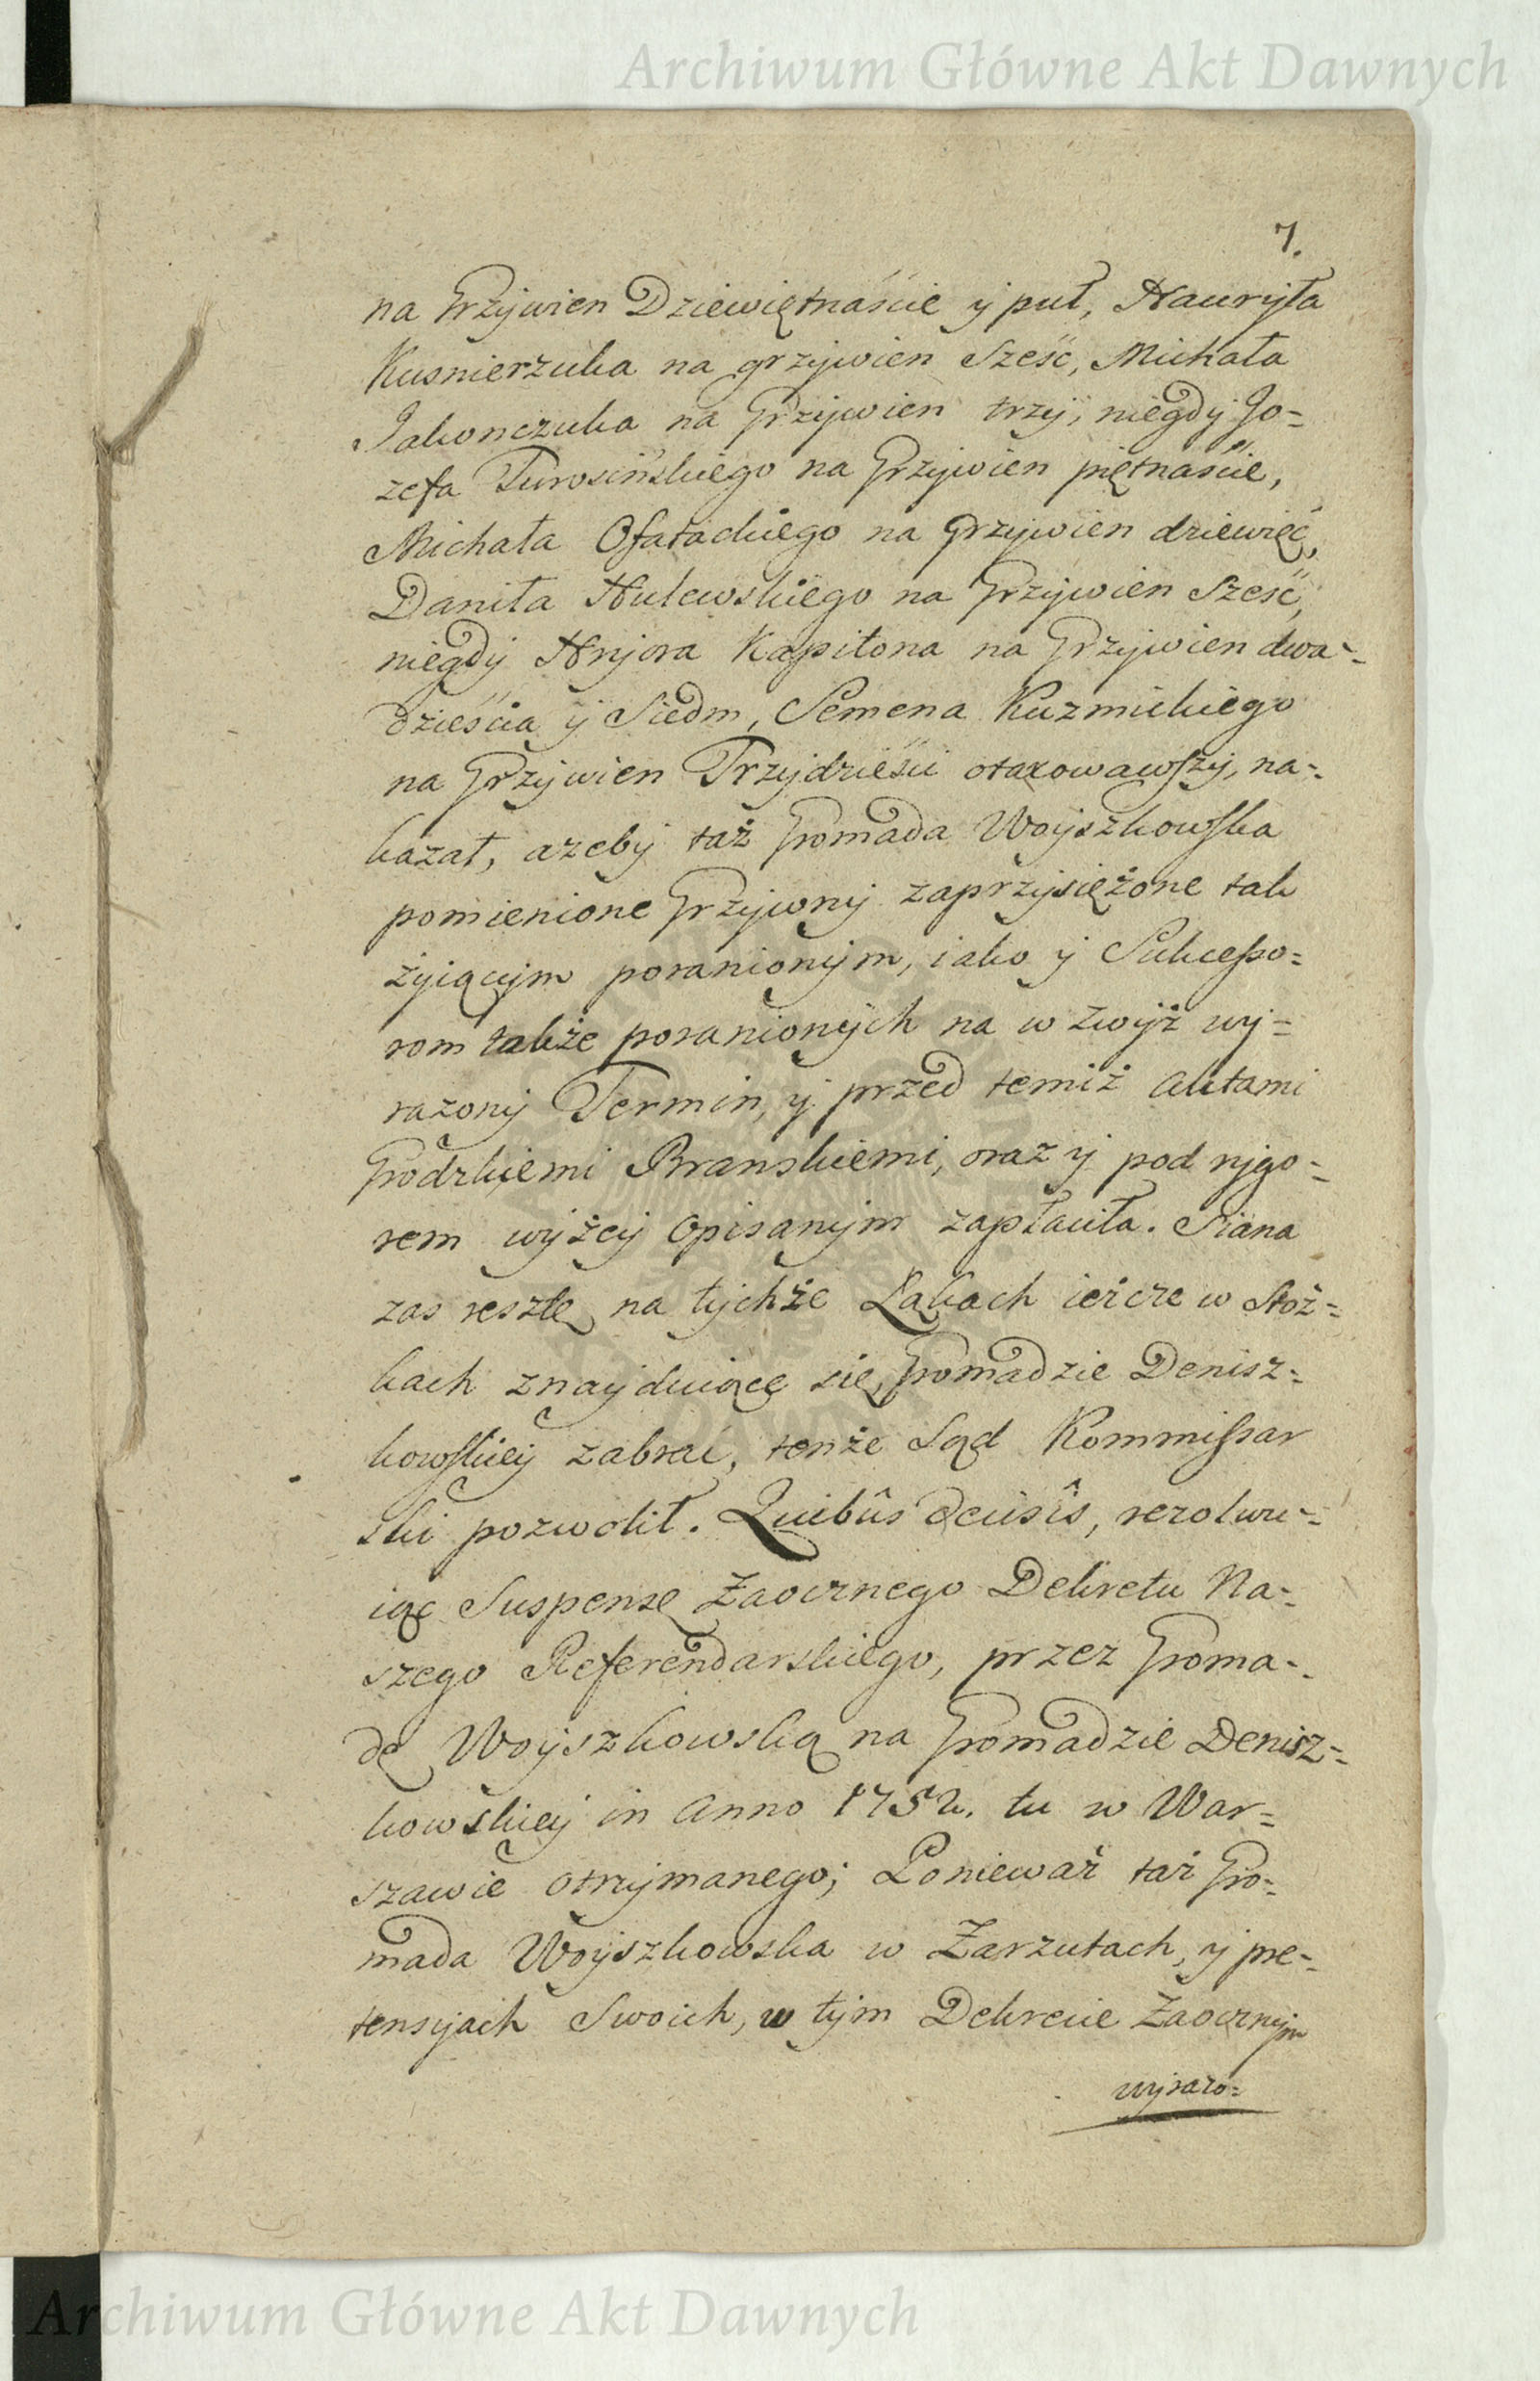 Archiwum Główne Akt Dawnych
7.
na Grzywien Dziewiętnaście y puł, Hawryła
Kusnierzuka na grzywien Sześć, Michała
Jakonczuka na Grzywien trzy, niegdy Jo=
zefa Turosińskiego na Grzywien piętnaście,
Michała na Grzywien dziewięć,
Daniła Hulewskiego na Grzywien Sześć,
niegdy Hryora Kapitona na Grzywien dwa=
dzieścia y Siedm, Semena Kuzmickiego
na Grzywien Trzydzieści otaxowawszy, na=
kazał, azeby taż Gromada Woyszkowska
pomienione Grzywny zaprzysiężone tak
żyiącym poranionym, iako y Sukcesso=
rom także poranionych na w zwyż wy=
razony Termin, y przed temiż Aktami
Grodzkiemi Branskiemi, oraz y pod rygo=
rem wyżey opisanym zapłaciła. Siana
zas resztę na tychże Łąkach ieżcze w Stoż=
kach znayduiącę się, Gromadzie Denisz=
kowskiey zabrać, tenże Sąd Kommissar
ski pozwolił. Quibûs decisîs, rezolwu=
iąc Suspensę Zaocznego Dekretu Na=
szego Referendarskiego, przez Groma=
dę Woyszkowską na Gromadzie Denisz=
kowskiey in Anno 1752. tu w War=
szawie otrzymanego; Ponieważ taż Gro=
mada Woyszkowska w Zarzutach, y pre=
tensyach Swoich, w tym Dekrecie Zaocznym
wyrazo=
Archiwum Główne Akt Dawnych